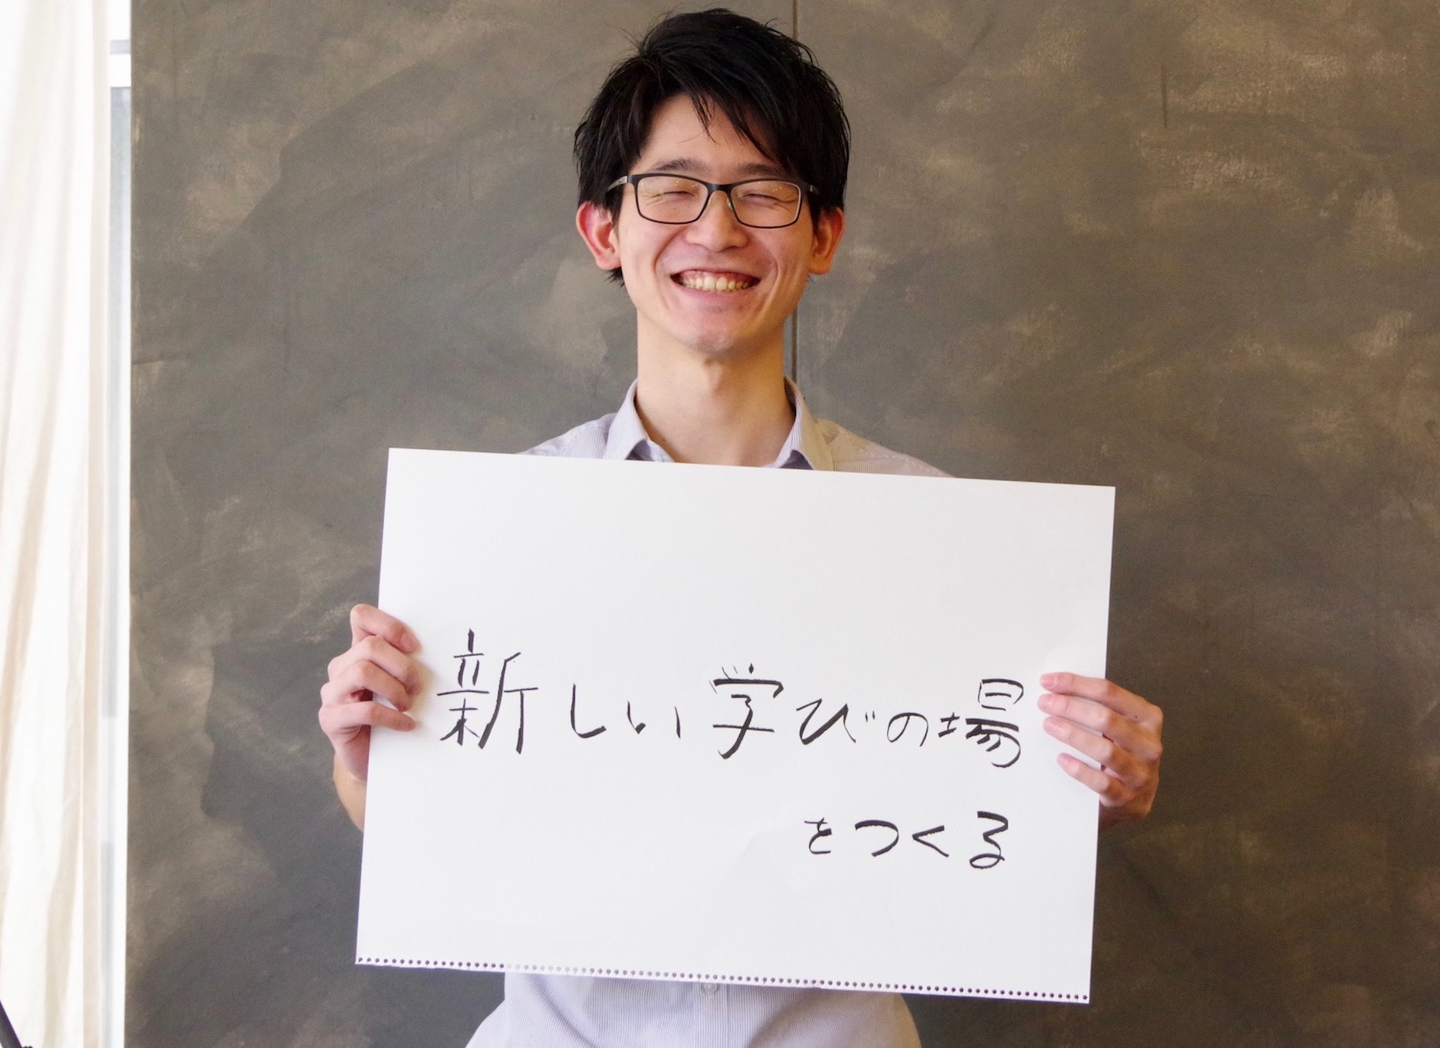 新しい学びの場
をつくる